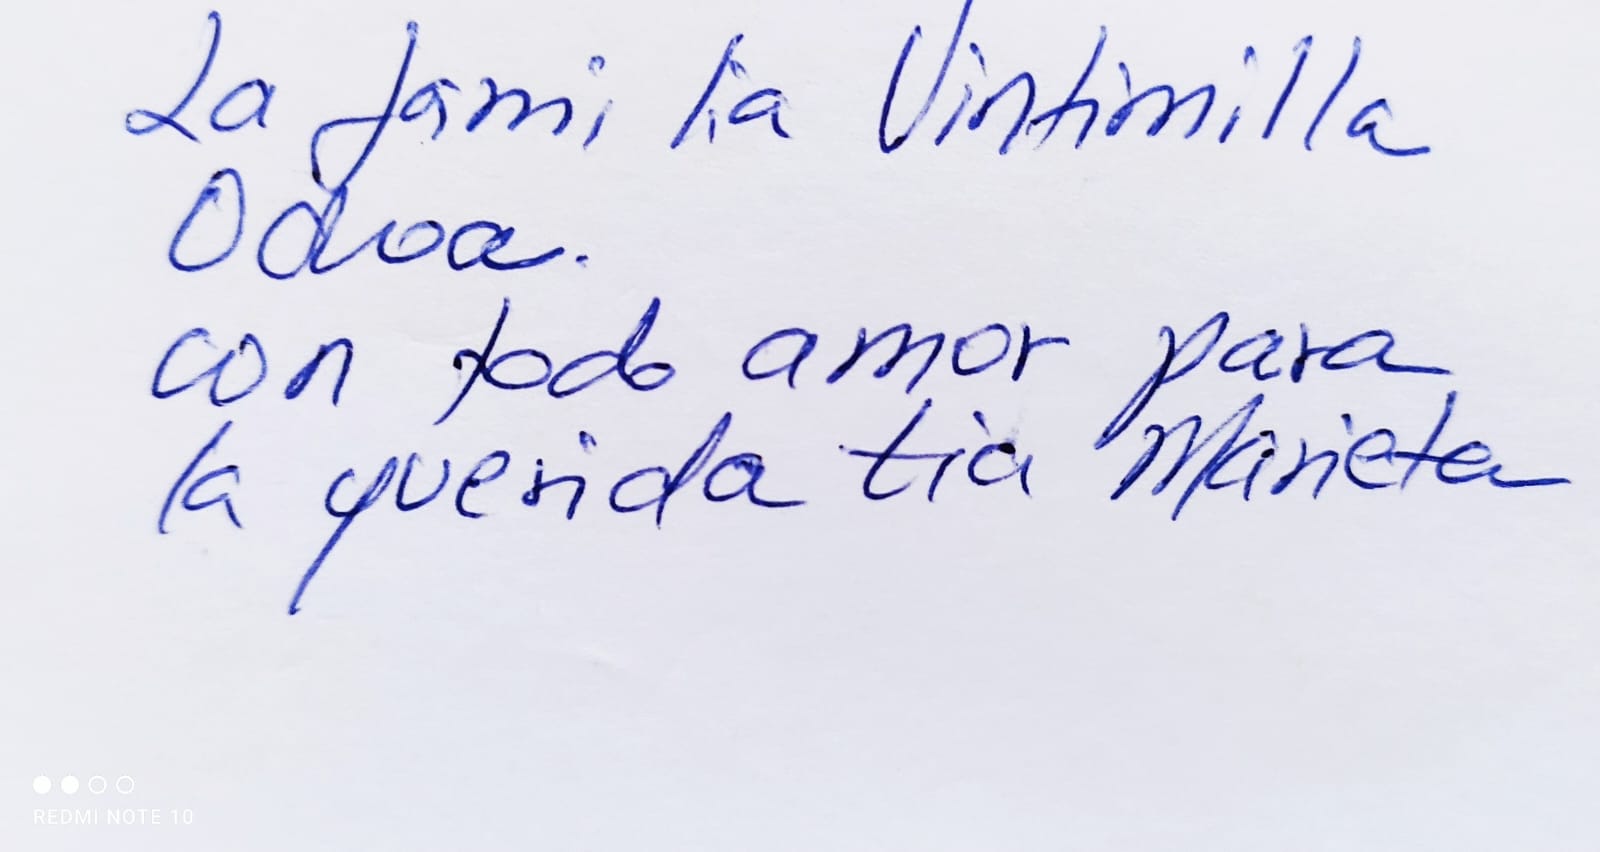 La familia Vintimilla
Odoa.
con todo amor para
la querida tia Marieta
REDMI NOTE 10